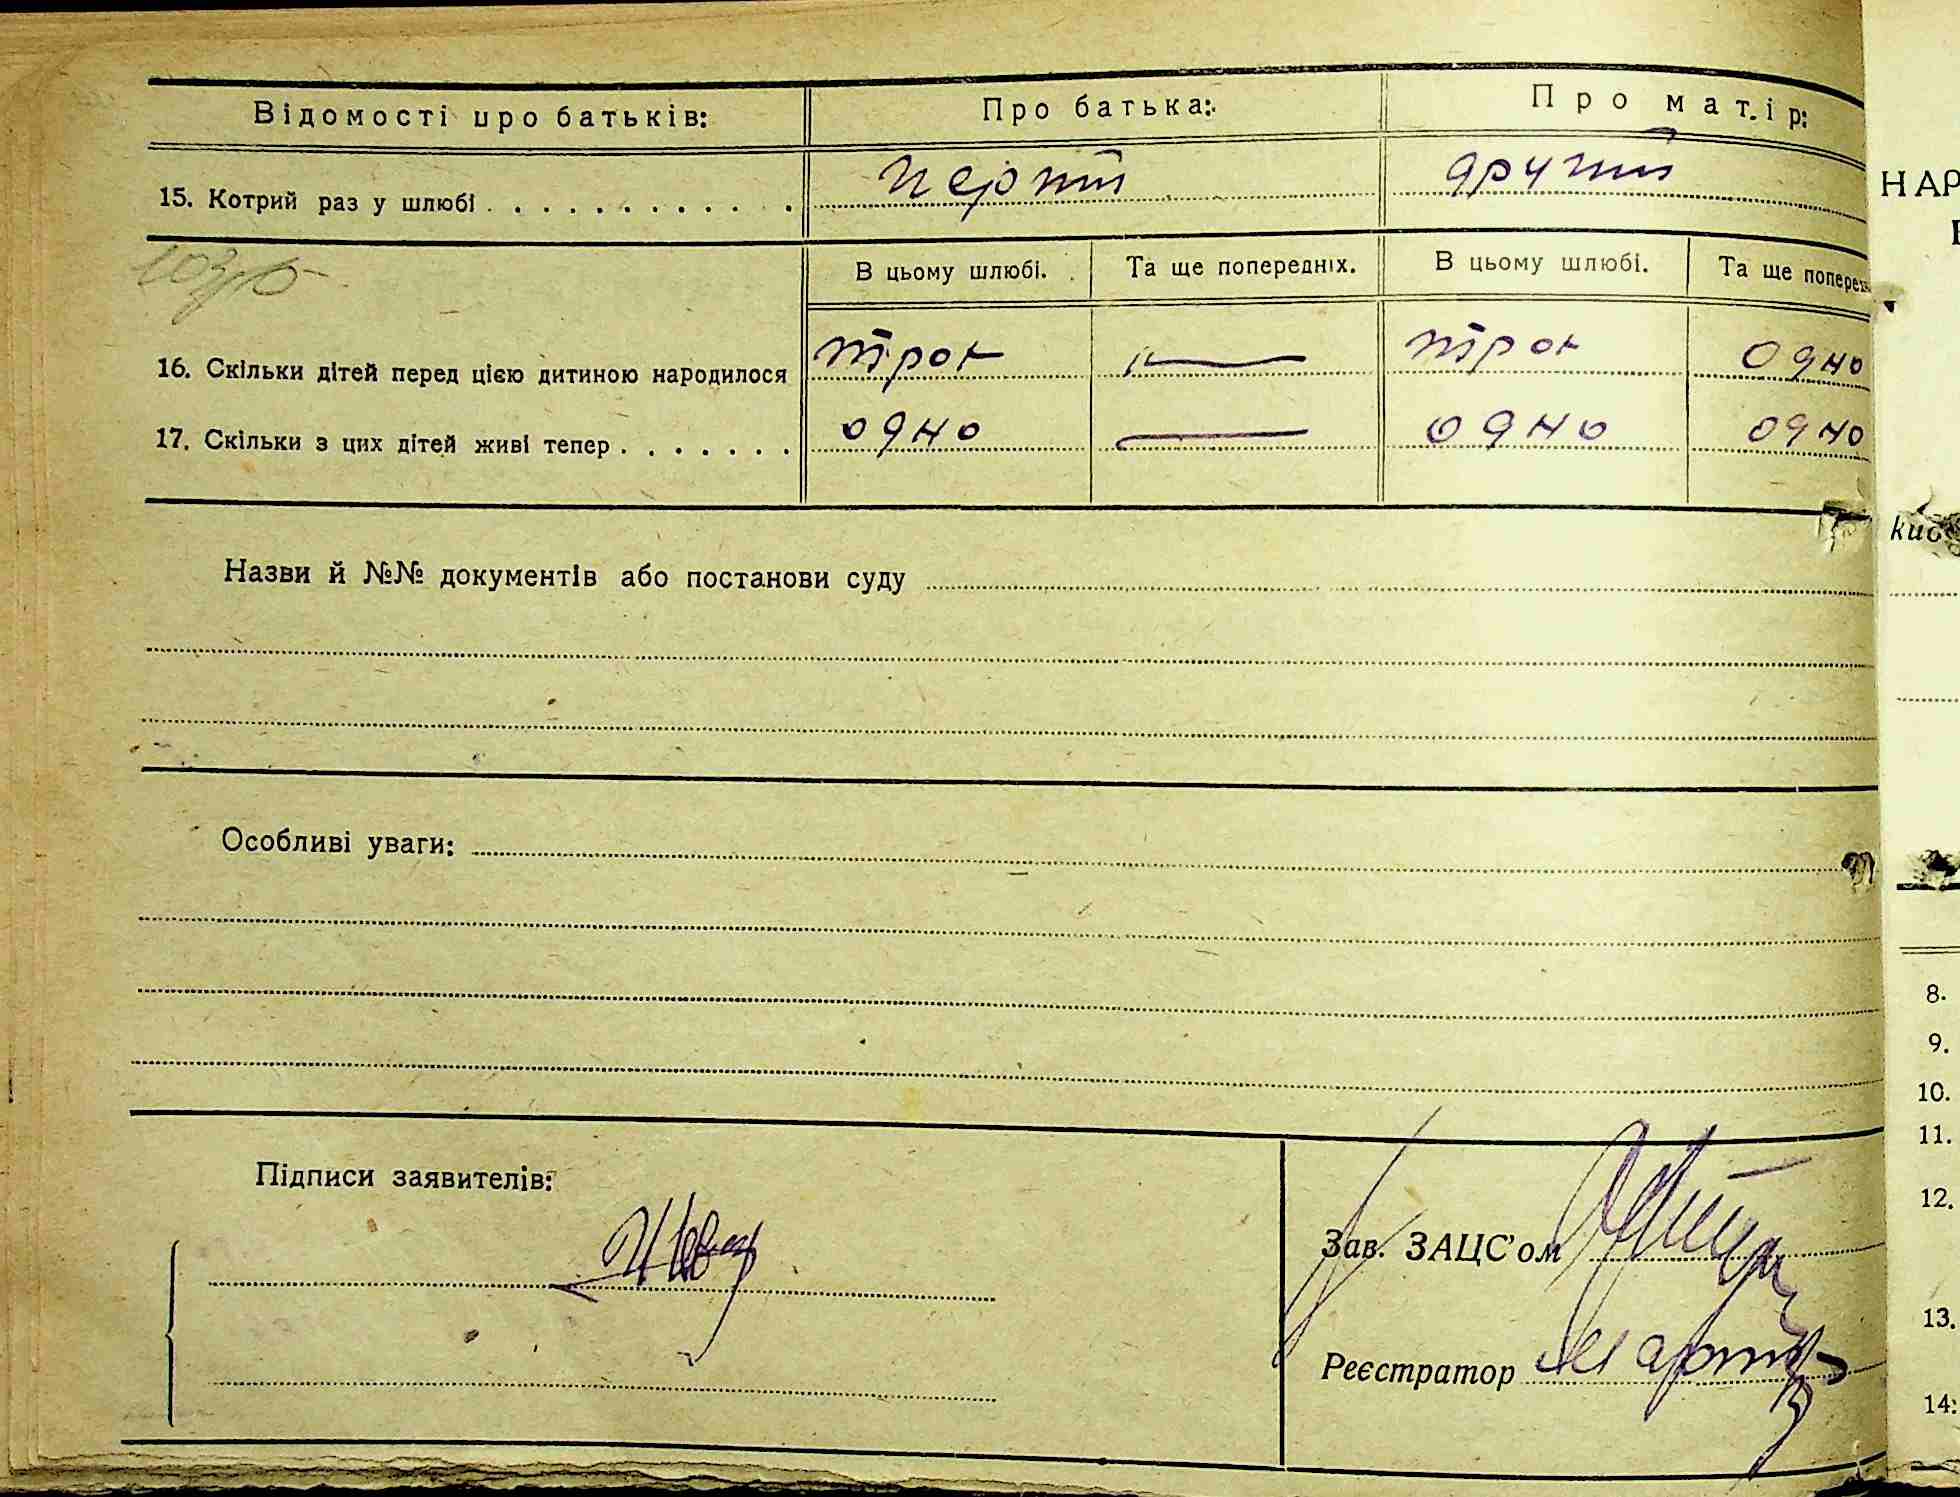 Відомості про батьків: Про батька: Про матір:
15. Котрий раз у шлюбі . . . . . . . . . . . . перший другий
В цьому шлюбі. Та ще попередніх. В цьому шлюбі. Та ще попередн
16. Скільки дітей перед цією дитиною народилося троє — троє одно
17. Скільки з цих дітей живі тепер . . . . . . . одно — одно одно
Назви й №№ документів або постанови суду
Особливі уваги:
Підписи заявителів:
Зав. ЗАЦС'ом
Реєстратор
НАР
8.
9.
10.
11.
12.
13.
14: